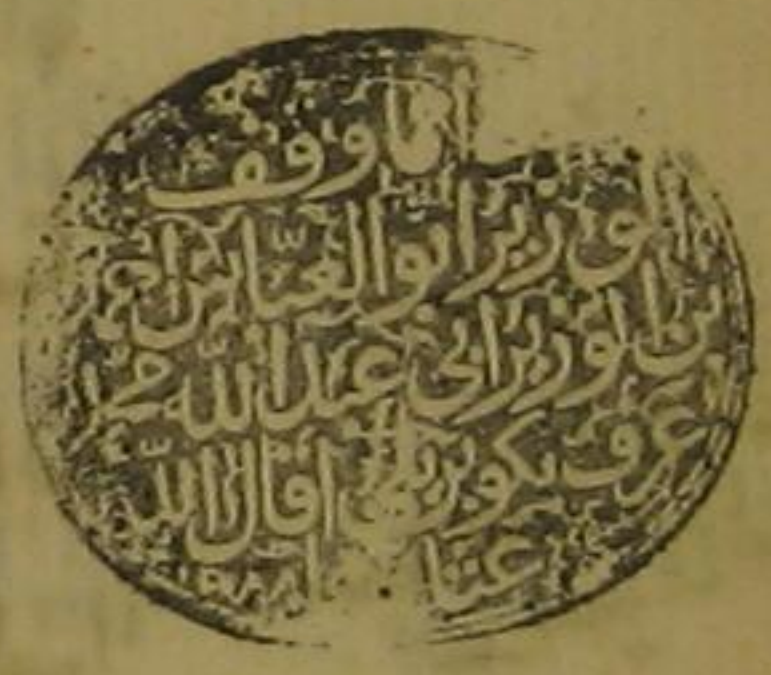 مما وقف
الوزير ابو العباس احمد
بن الوزير ابي عبد الله محمد
عرف بكوبريلي اقال الله
عثارهما ١٠٨٨